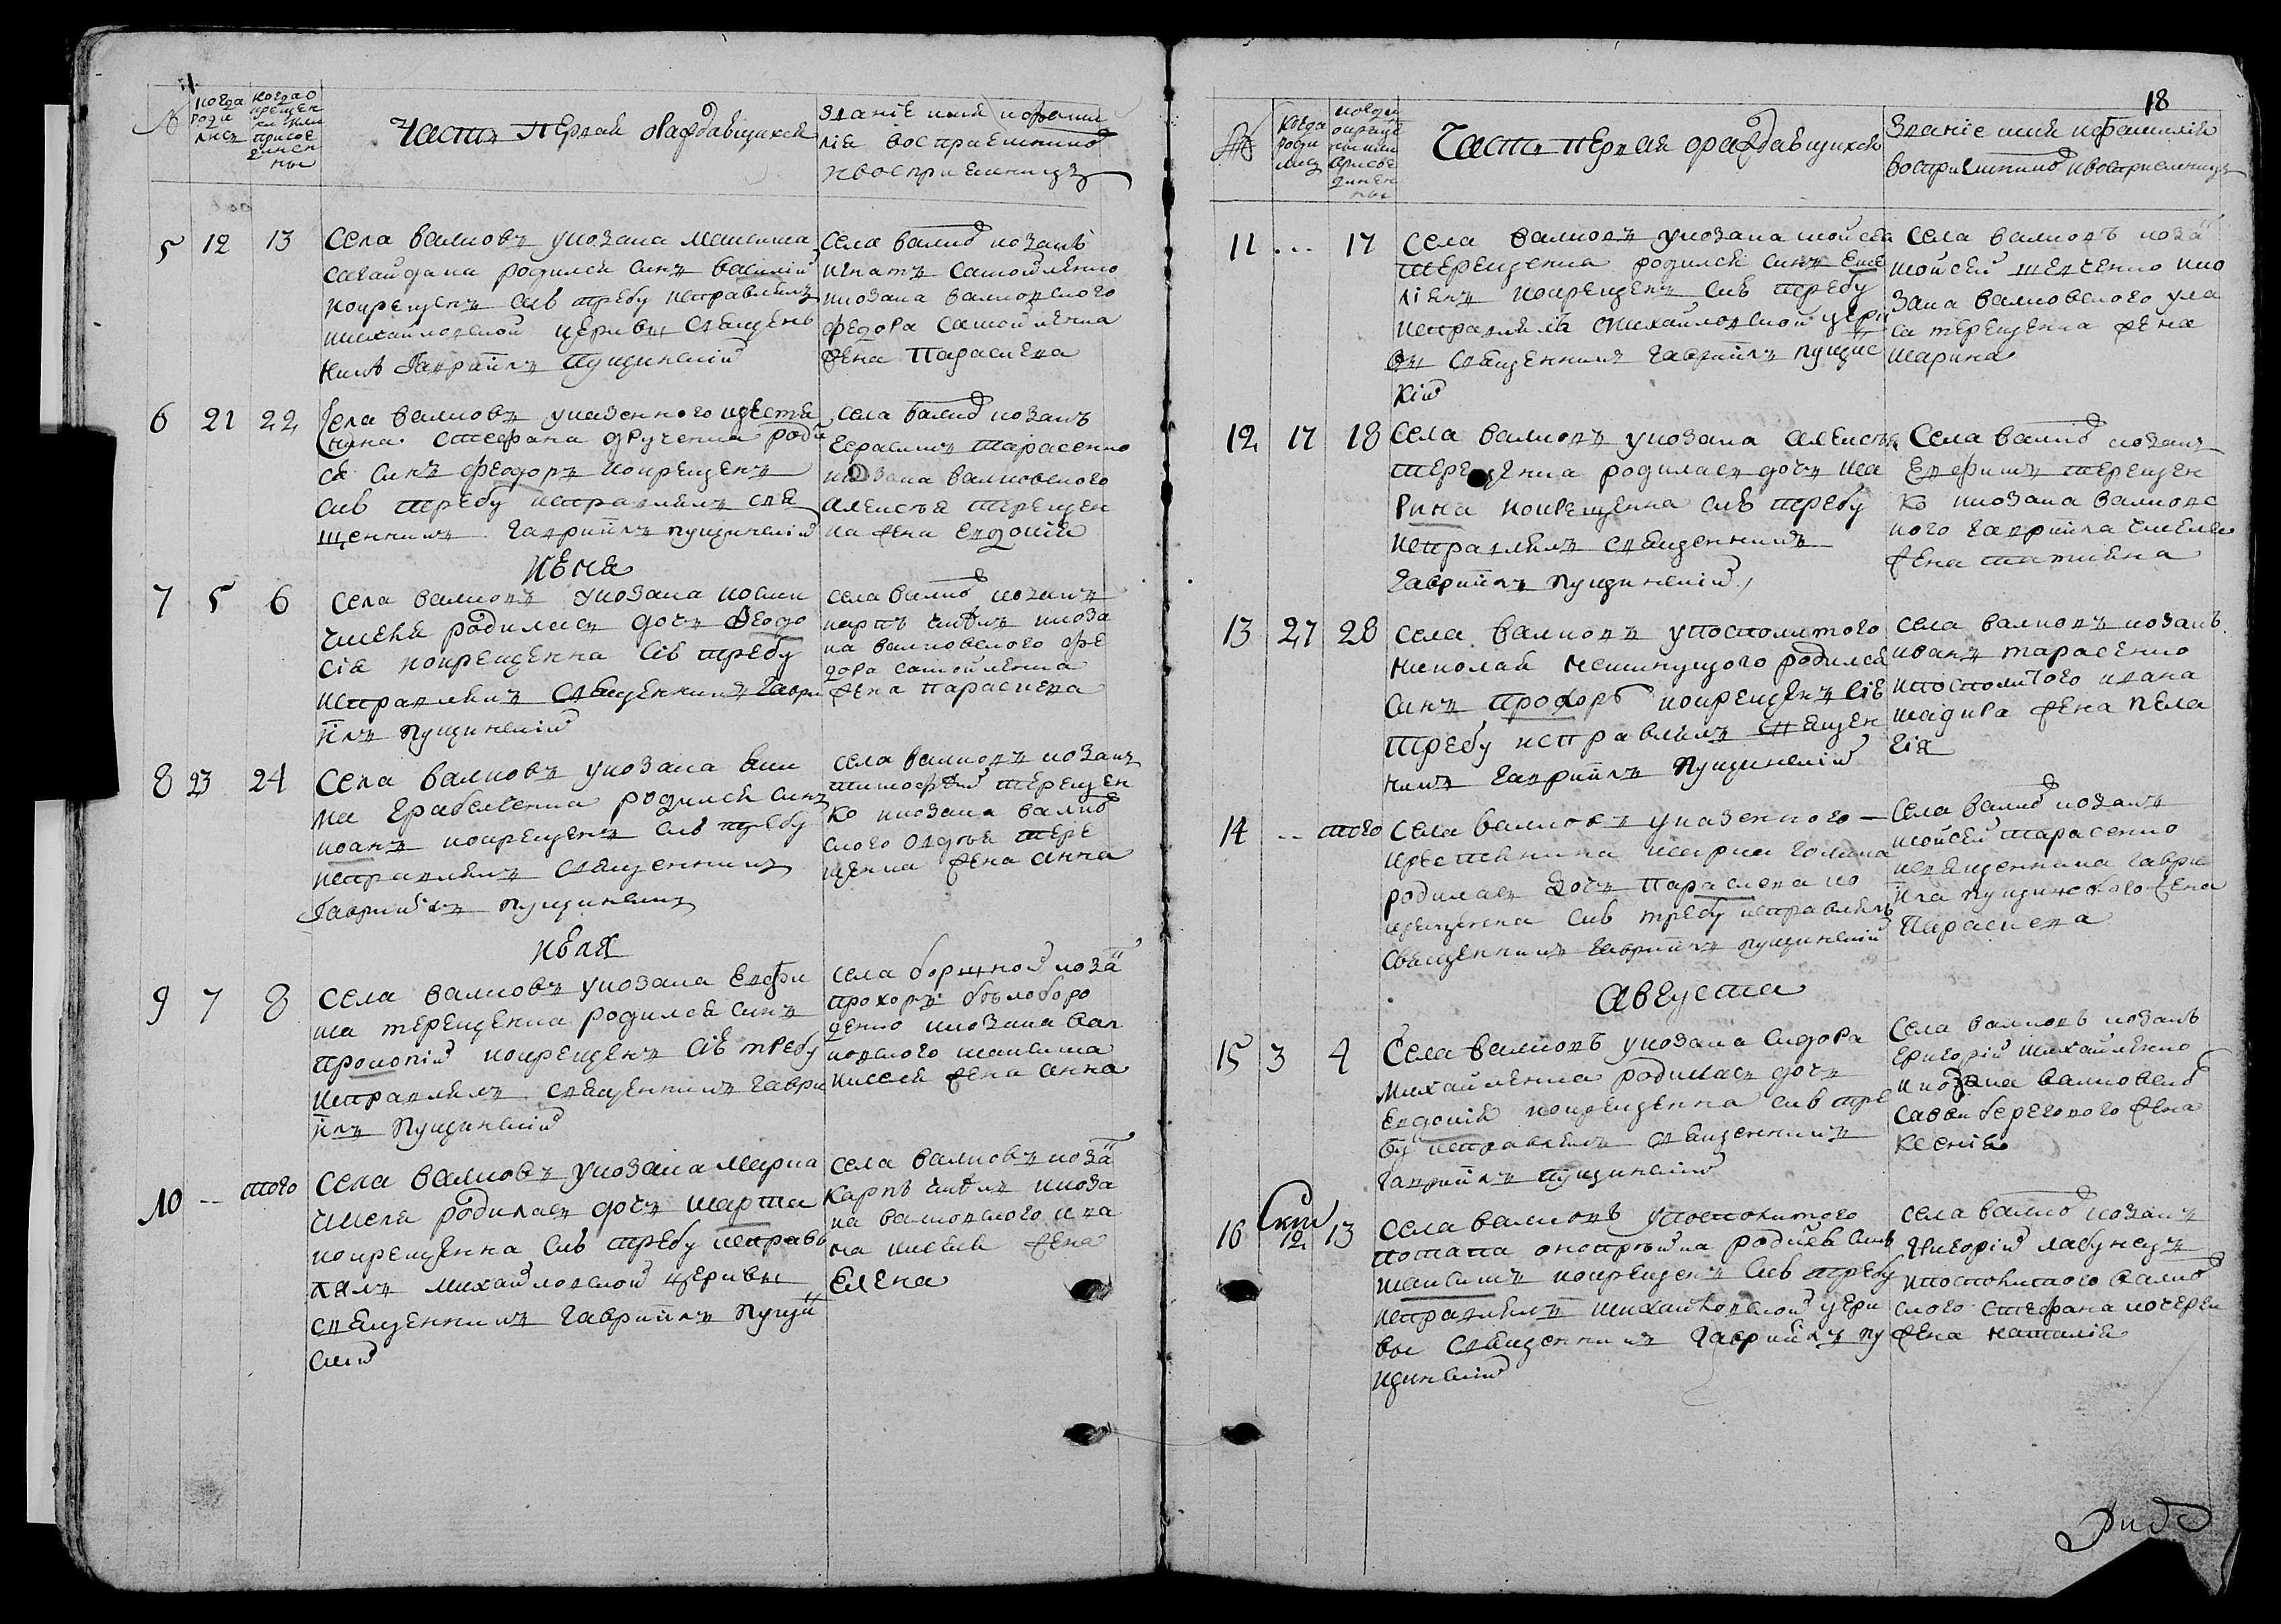 №
когда роди лис
когда о крещен ны или присое динен ны
Часть первая ораждающихся
званіе имя и фами
лія воспраемников
и воспрiемниц
5 12 13
Села валковъ укозака максима
сагайдака родился синъ василій
и окрещенъ сию требу исправлялъ
михайловской церквы священъ
никъ Гавріилъ пущинскій
села валков козакъ
игнатъ самойленко
и козака валковского
федора самойленка
жена Параскева
6 21 22
Села валковъ указенного крестя
нина стефана родил
ся синъ феодоръ и окрещенъ
сию требу исправлялъ свя
щенникъ Гавріилъ пущинскій
села валков козакъ
герасимъ тарасенко
и козака валковского
алексея терещен
ка жена евдокія
июня
7 5 6
села валковъ укозака
родилась дочъ феодо
сія и окрещенна сію требу
исправлялъ священникъ гаври
илъ пущинскій
села валков козакъ
карпъ козa
ка валковского фе
дора самойленка
жена параскева
8 23 24
Села валковъ укозака
ма родился синъ
иоанъ и окрещенъ сию требу
исправлялъ священникъ
Гавріилъ пущинскій
села валковъ козакъ
тимофей терещен
ко и козака валков
ского тере
щенка жена анна
июля
9 7 8
села валковъ укозака евфи
ма терещенка родился синъ
прокопій и окрещенъ сію требу
исправлялъ священникъ гаври
илъ пущинскій
села борщной коза
прохоръ белоборо
денко и козака вал
ковского максима
жена анна
10 -- того
села валковъ укозака марка
родилась дочъ марта
и окрещенна сию требу исправ
лялъ михайловской церквы
священникъ гавріилъ пущи
скій
села валковъ коза
карпъ и коза
ка валковского ива
на жена
Елена
18
№
когда роди лис
когда окреще ны или присое динен ны
Часть первая ораждающихся
званіе имя и фамилія
воспріемников и воспріемниц
11 ... 17
Села валковъ укозака мойсея
терещенка родился синъ еме
ліянъ и окрещенъ сию требу
исправлялъ михайловской церк
вы священникъ гавріилъ пущинс
кій
села валковъ коза
мойсей и ко
зака валковского ула
са терещенка жена
марина
12 17 18
Села валковъ укозака алексея
терещенка родилась дочъ ма
рина и окрещенна сию требу
исправлялъ священникъ
гавріилъ пущинскій
Села валков козакъ
Евфимъ терещен
ко и козака валковс
кого гавріила
жена татияна
13 27 28
села валковъ у посполитого
николая родился
синъ прохоръ и окрещенъ сію
требу исправлялъ священ
никъ гавріилъ пущинскій
села валковъ козакъ
иванъ тарасенко
и посполитого ивана
жена пела
гія
14 -- того
села валковъ указенного
крестянина
родилась дочъ параскева и о
крещенна сию требу исправлялъ
священникъ гавріилъ пущинскій
села валков козакъ
мойсей тарасенко
и священника гаври
ила пущинского жена
Параскева
августа
15 3 4
Села валковъ укозака сидора
михайленка родилась дочъ
евдокія и окрещенна сию тре
бу исправлялъ священникъ
гавріилъ пущинскій
села валковъ козакъ
григорій михайленко
и козака валковско
саввы берегового жена
ксенія
16 12 13
села валковъ у посполитого
потапа родився синъ
максимъ и окрещенъ сию требу
исправлялъ михайловской церк
вы священникъ гавріилъ пу
щинскій
села валков козакъ
григорій лабунецъ
и посполитого валков
ского стефана
жена наталія